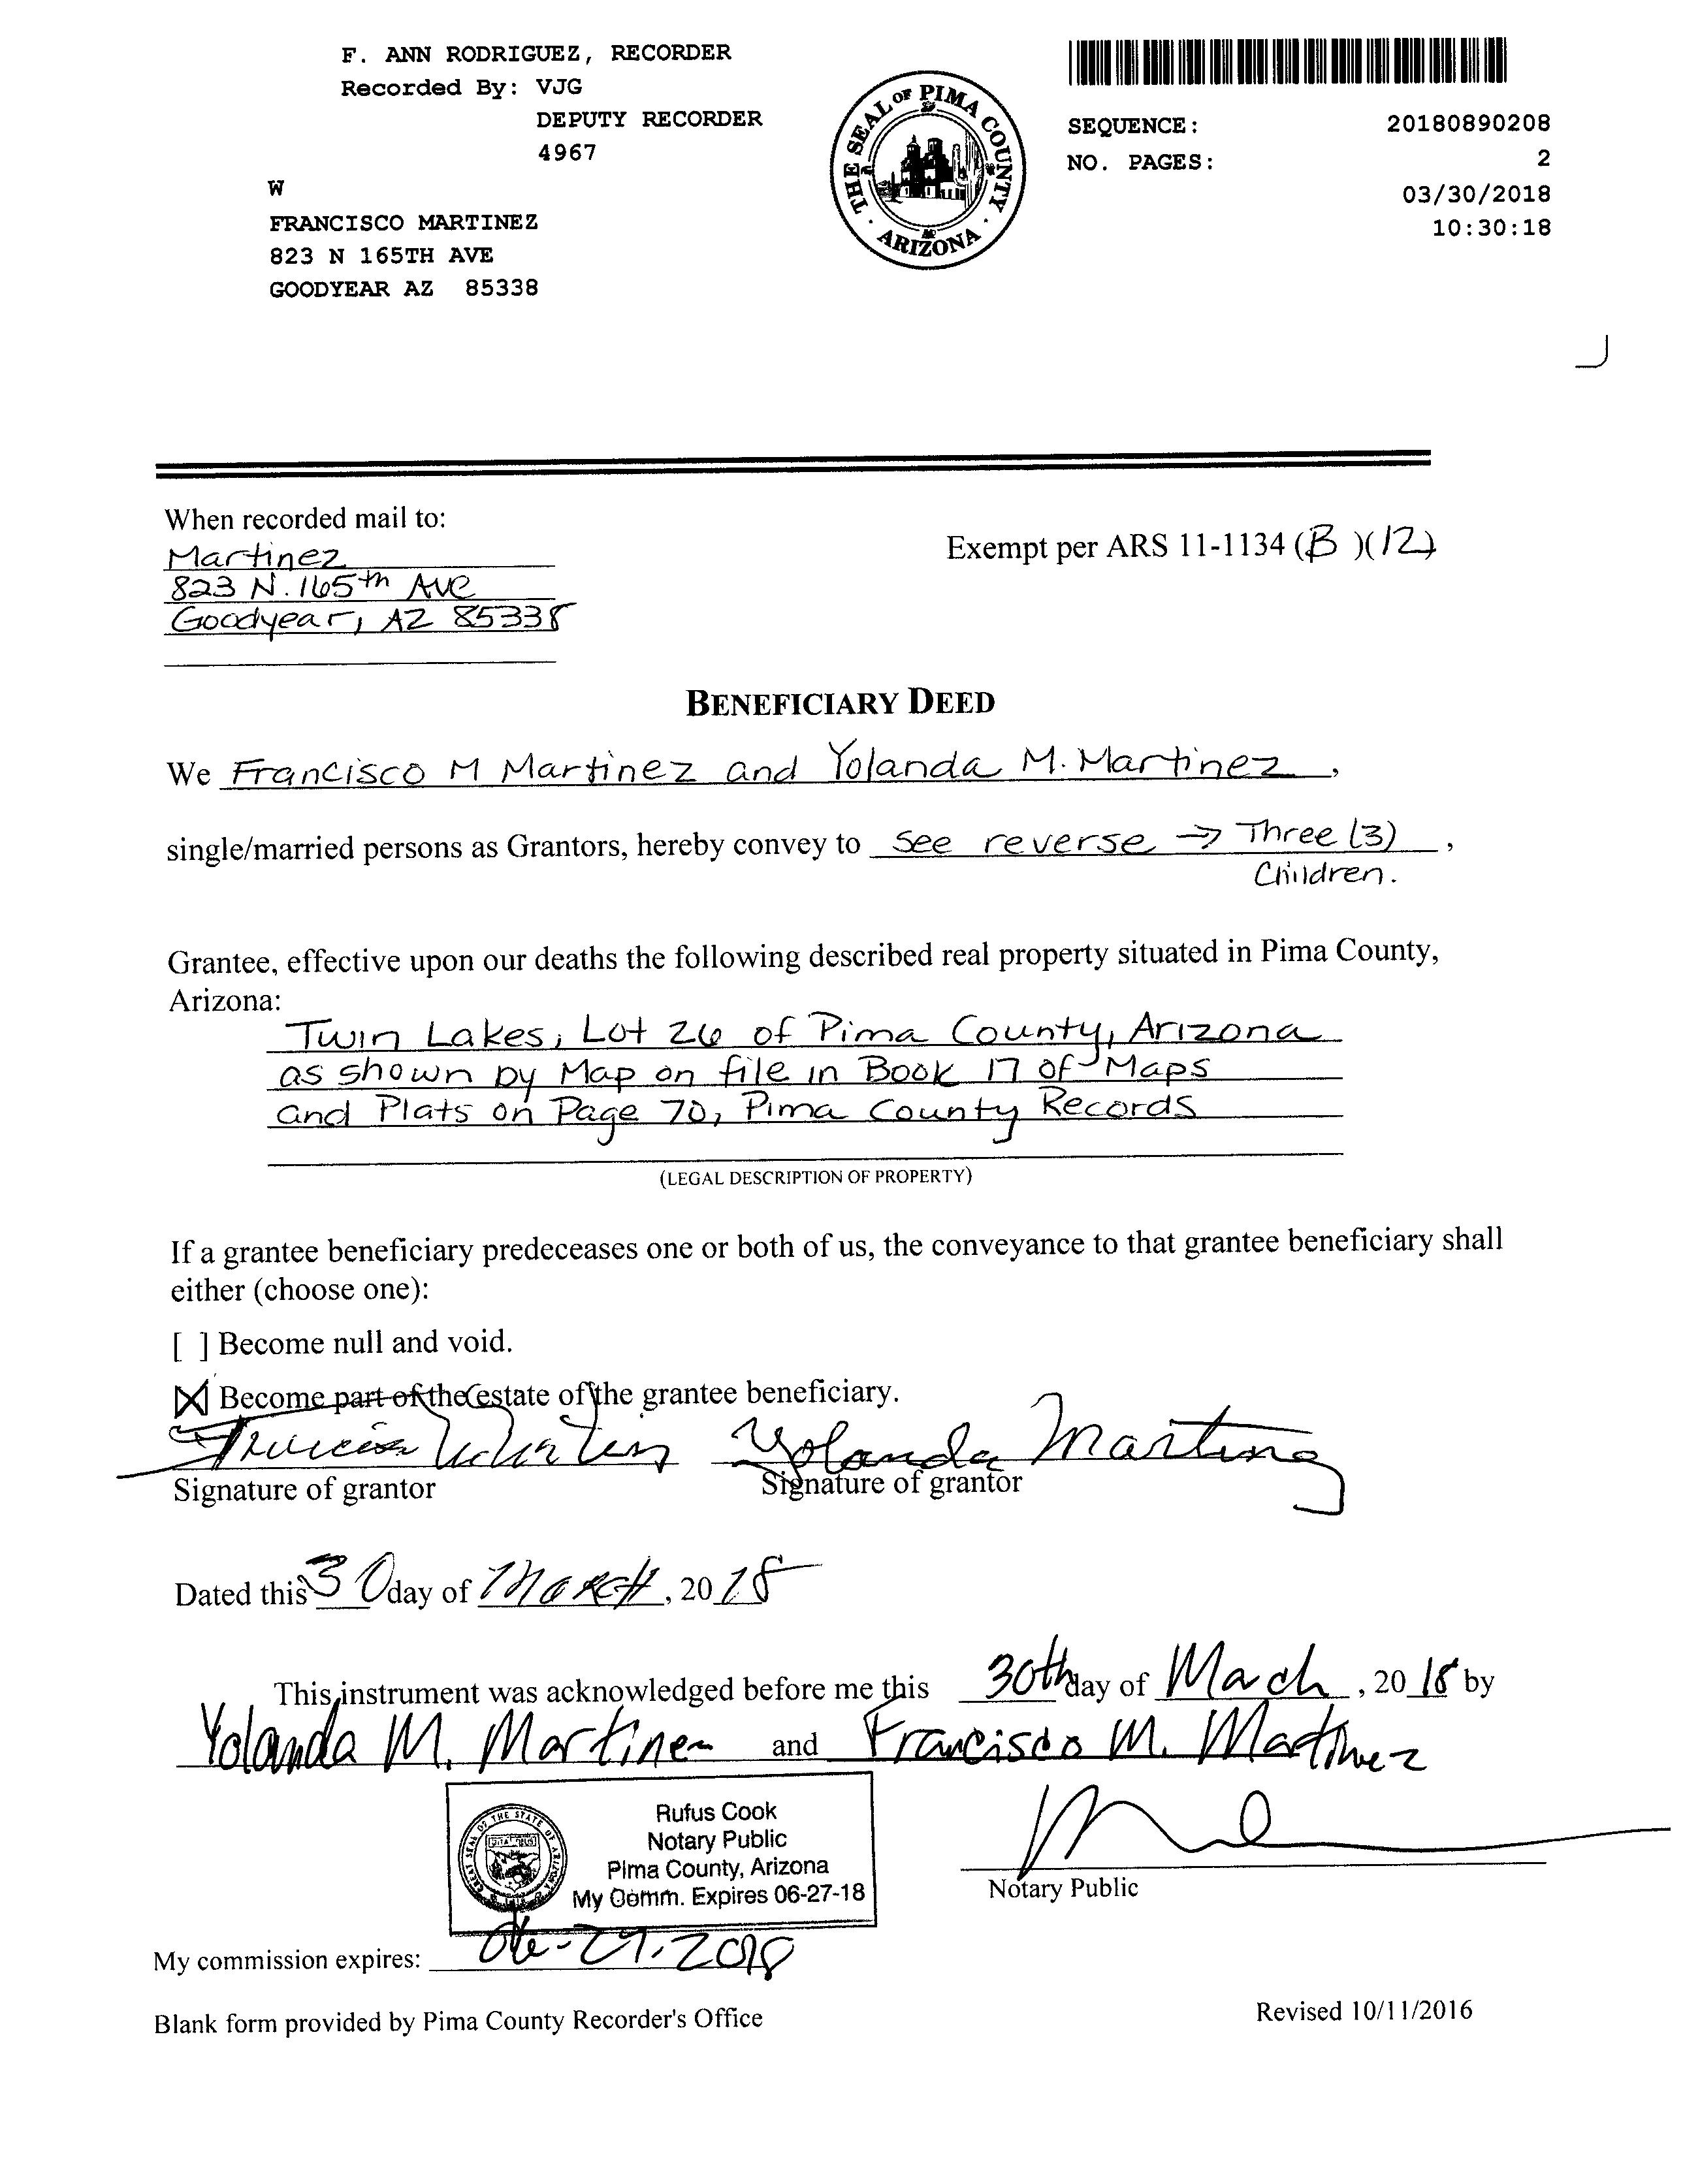 F. ANN RODRIGUEZ, RECORDER
Recorded By: VJG
DEPUTY RECORDER
4967
W
FRANCISCO MARTINEZ
823 N 165TH AVE
GOODYEAR AZ 85338
THE SEAL OF PIMA COUNTY
ARIZONA
SEQUENCE: 20180890208
NO. PAGES: 2
03/30/2018
10:30:18
When recorded mail to:
Martinez
823 N. 165th Ave
Goodyear, AZ 85338
Exempt per ARS 11-1134 (B)(12)
BENEFICIARY DEED
We Francisco M Martinez and Yolanda M. Martinez,
single/married persons as Grantors, hereby convey to see reverse → Three (3),
Children.
Grantee, effective upon our deaths the following described real property situated in Pima County,
Arizona:
Twin Lakes, Lot 26 of Pima County, Arizona
as shown by Map on file in Book 17 of Maps
and Plats on Page 70, Pima County Records
(LEGAL DESCRIPTION OF PROPERTY)
If a grantee beneficiary predeceases one or both of us, the conveyance to that grantee beneficiary shall
either (choose one):
[ ] Become null and void.
[X] Become part of the estate of the grantee beneficiary.
Yolanda Martinez
Signature of grantor Signature of grantor
Dated this 30 day of MARCH, 2018
This instrument was acknowledged before me this 30th day of March, 2018 by
Yolanda M. Martinez and Francisco M. Martinez
GREAT SEAL OF THE STATE OF ARIZONA
Rufus Cook
Notary Public
Pima County, Arizona
My Comm. Expires 06-27-18
Notary Public
My commission expires: 06-27-2018
Blank form provided by Pima County Recorder's Office
Revised 10/11/2016